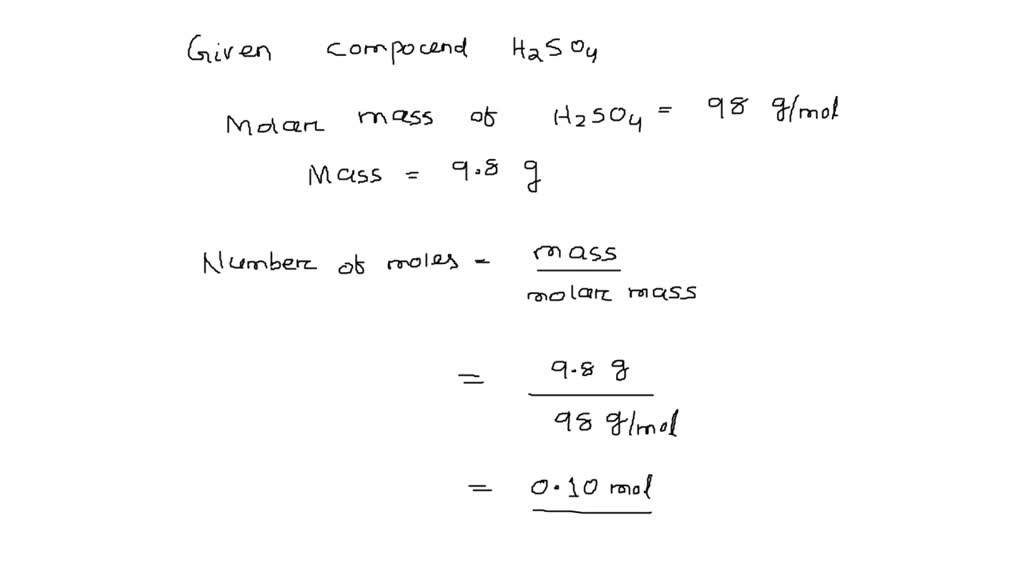 Given compocend H2SO4
Molar mass of H2SO4 = 98 g/mol
Mass = 9.8 g
Number of moles = mass
molar mass
= 9.8 g
98 g/mol
= 0.10 mol